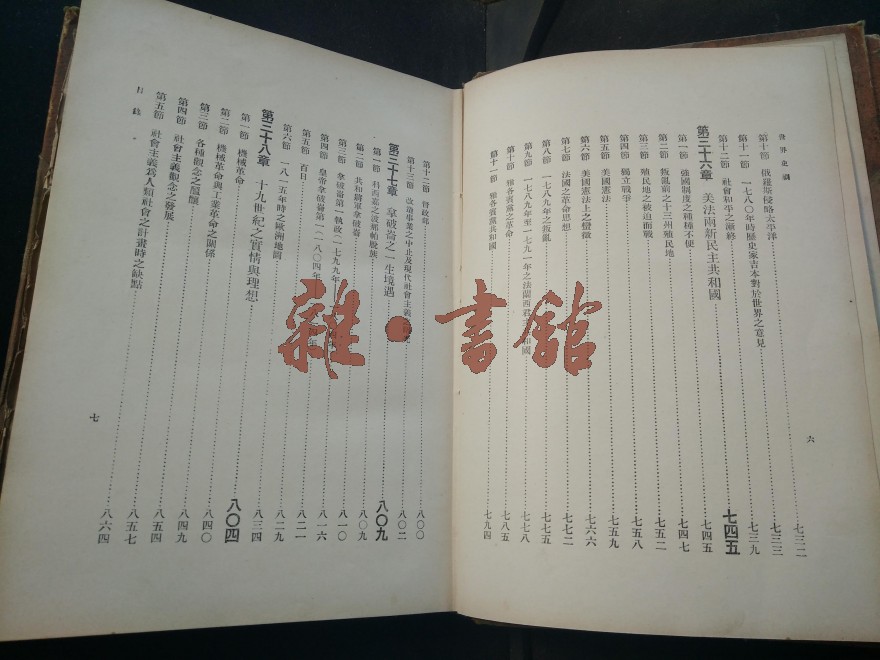 世界史綱
第十節 俄羅斯侵略太平洋 七三二
第十一節 一七八〇年時歷史家吉本對於世界之意見 七三三
第十二節 社會和平之漸終 七三九
第三十六章 美法兩新民主共和國 七四五
第一節 強國制度之種種不便 七四五
第二節 叛亂前之十三州殖民地 七四七
第三節 殖民地之被迫而戰 七五二
第四節 獨立戰爭 七五八
第五節 美國憲法 七五九
第六節 美國憲法上之蠻徵 七六六
第七節 法國之革命思想 七七二
第八節 一七八九年之叛亂 七七五
第九節 一七八九年至一七九一年之法蘭西君主共和國 七七八
第十節 雅各賓黨之革命 七八五
第十一節 雅各賓黨共和國 七九四
六
第十二節 督政部 八〇〇
第十三節 改造事業之中止及現代社會主義 八〇二
第三十七章 拿破崙之一生境遇 八〇九
第一節 科西嘉之波那帕脫族 八〇九
第二節 共和將軍拿破崙 八一〇
第三節 拿破崙第一執政一七九九年 八一六
第四節 皇帝拿破崙第一一八〇四年 年 八二一
第五節 百日 八二九
第六節 一八一五年時之歐洲地圖 八三四
第三十八章 十九世紀之實情與理想 八〇四
第一節 機械革命 八四〇
第二節 機械革命與工業革命之關係 八四九
第三節 各種觀念之醞釀 八五四
第四節 社會主義觀念之發展 八五七
第五節 社會主義為人類社會之計畫時之缺點 八六四
目錄
七
雜·書館